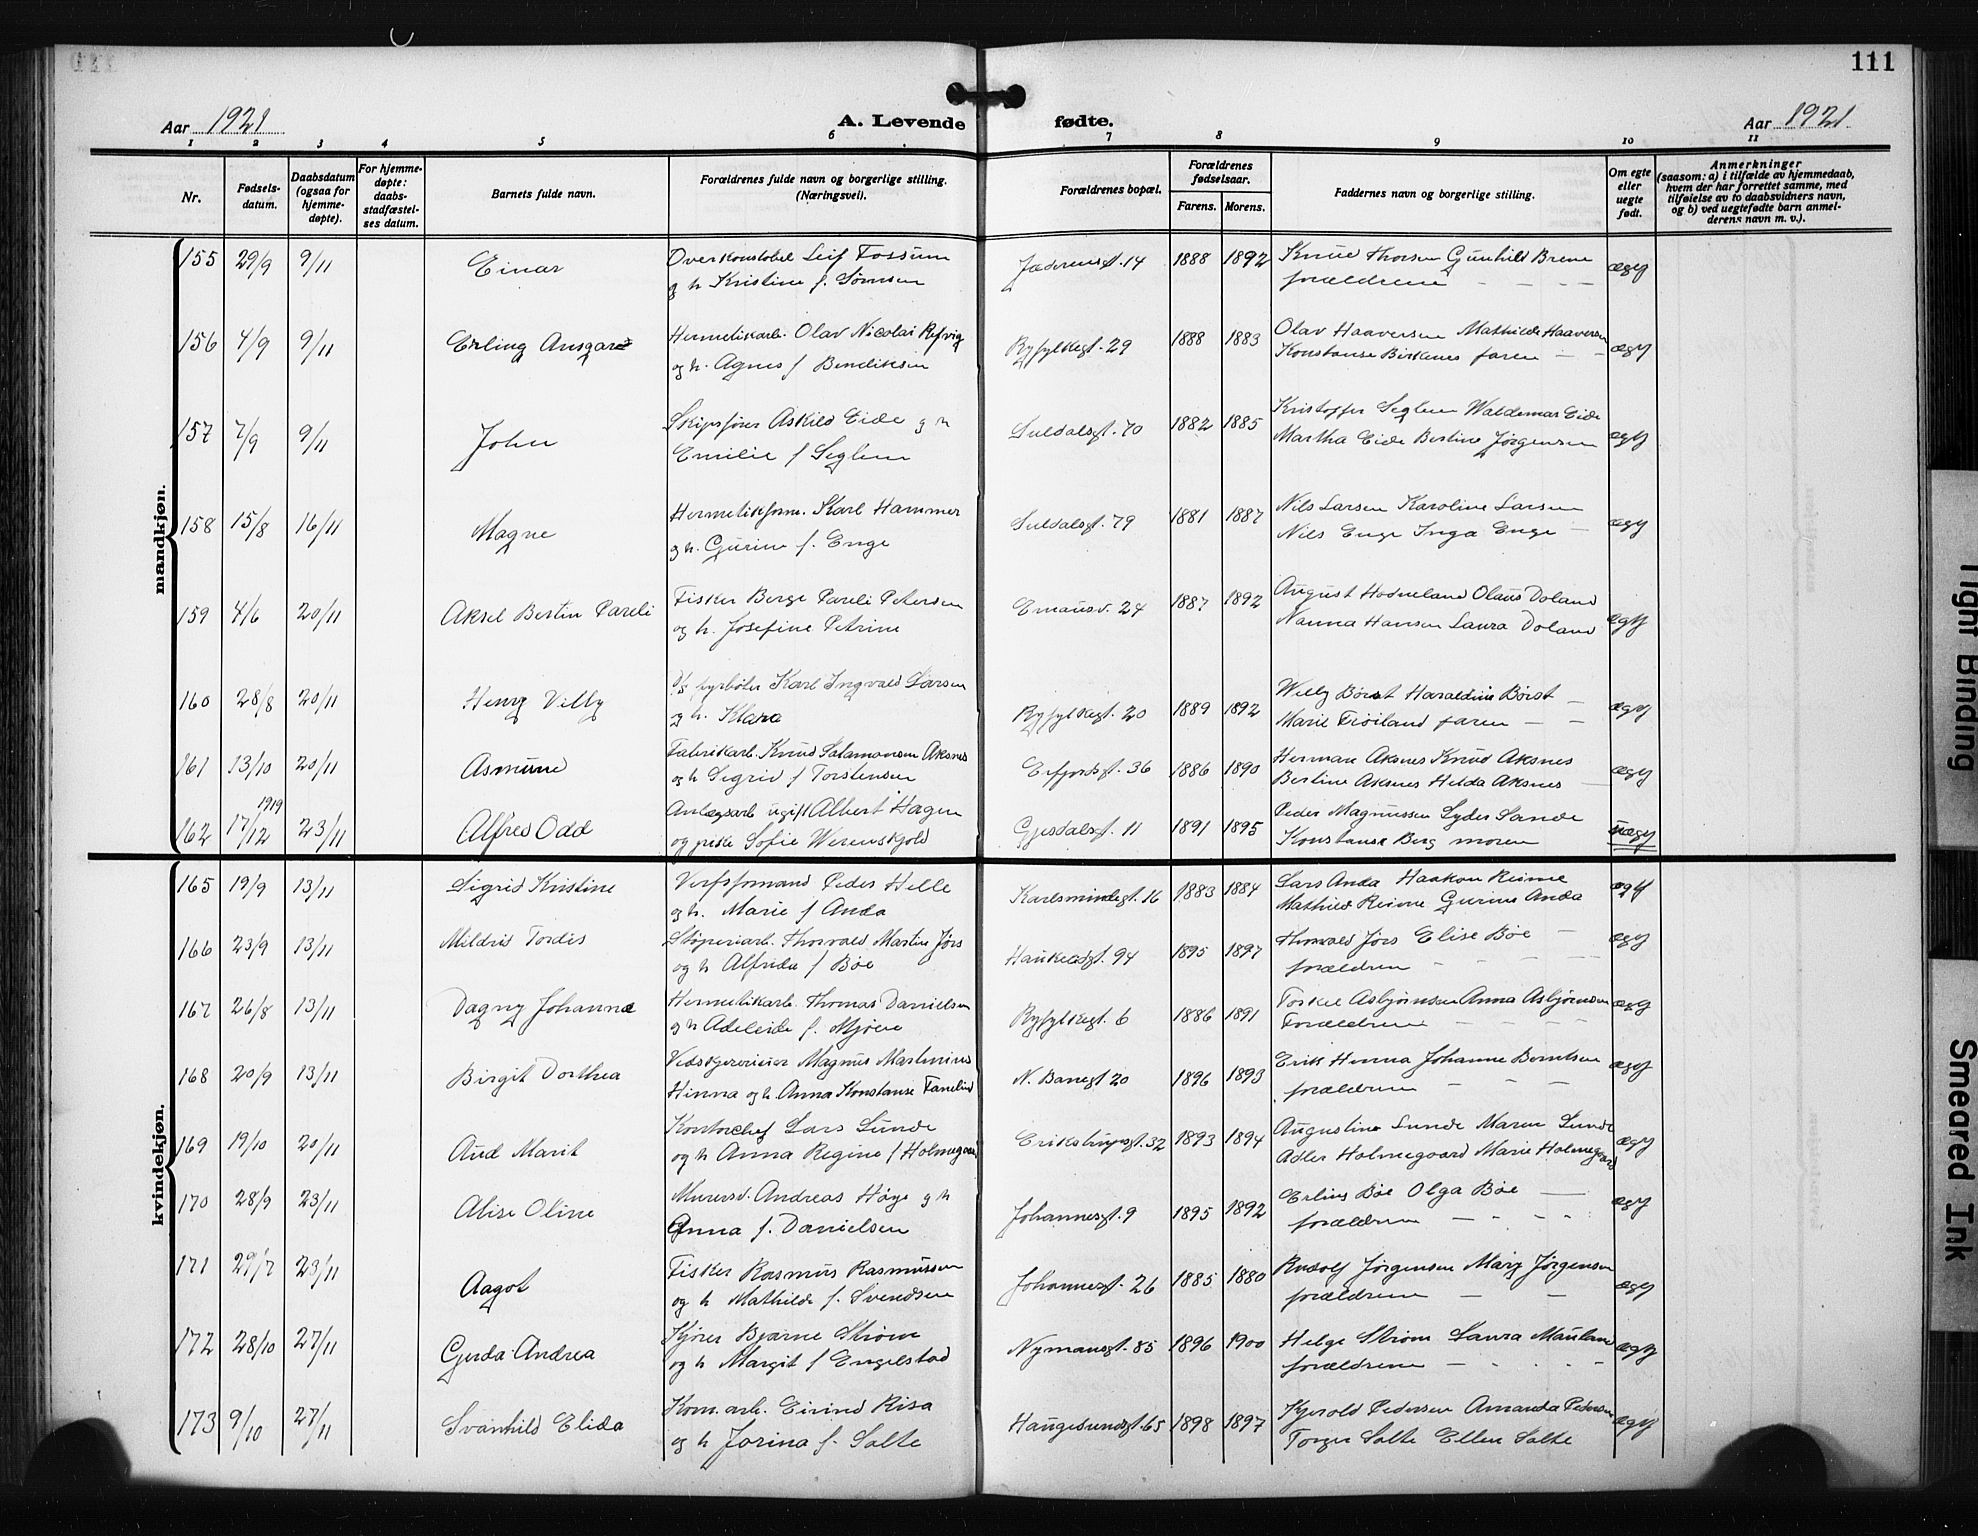 111
Aar 1921
A. Levende fødte.
Aar 1921
1 2 3 4 5 6 7 8 9 10 11
Nr.
Fødsels-
datum.
Daabsdatum
(ogsaa for
hjemme-
døpte).
For hjemme-
døpte:
daabs-
stadfæstel-
ses datum.
Barnets fulde navn.
Forældrenes fulde navn og borgerlige stilling.
(Næringsvei).
Forældrenes bopæl.
Forældrenes
fødselsaar.
Farens. Morens.
Faddernes navn og borgerlige stilling.
Om egte
eller
uegte
født.
Anmerkninger
(saasom: a) i tilfælde av hjemmedaab,
hvem der har forrettet samme, med
tilføielse av to daabsvidners navn,
og b) ved uegtefødte barn anmel-
derens navn m. v.).
mandkjøn.
155 29/9 9/11 Einar Overkonstabel Leif Fossum Jæderengt. 14 1888 1892 Knud Thorsen Gunhild Brene ægt
og h Kristine f. Sømsen forældrene
156 4/9 9/11 Erling Ansgar Hermetikarb. Olav Nicolai Refvig Ryfylkegt. 29 1888 1883 Olav Haaversen Mathilde Haaversen ægt
og h. Agnes f Bendiksen Konstanse Birkenes faren
157 7/9 9/11 John Skipsfører Askild Eide og h Suldalsgt. 70 1882 1885 Kristoffer Seglem Waldemar Eide ægt
Emilie f Seglem Martha Eide Bertine Jørgensen
158 15/8 16/11 Magne Hermetikform. Karl Hammer Suldalsgt. 79 1881 1887 Nils Larsen Karoline Larsen ægt
og h. Gurine f. Enge Nils Enge Inga Enge
159 4/6 20/11 Aksel Bertin Pareli Fisker Berge Pareli Petersen Emausv. 24 1887 1892 August Hodneland Olaus Doland ægt
og h. Josefine Petrine Nanna Hansen Laura Doland
160 28/8 20/11 Henry Villy D/s fyrbøter Karl Ingvald Larsen Ryfylkegt. 20 1889 1892 Willy Børst Haraldine Børst ægt
og h. Klara Marie Frøiland faren
161 13/10 20/11 Asmund Fabrikarb. Knud Salamonsen Aksnes Erfjordsgt. 36 1886 1890 Herman Aksnes Knud Aksnes ægt
og h Sigrid f Torstensen Bertine Aksnes Helda Aksnes
162 17/12 1919 23/11 Alfred Odd Anlægsarb ugift Albert Hagen Gjesdalsgt. 11 1891 1895 Peder Magnussen Lyder Sande uægt
og pike Sofie Werenskjold Konstanse Berg moren
kvindekjøn.
165 19/9 13/11 Sigrid Kristine Verfsformand Peder Helle Karlsmindegt. 16 1883 1884 Lars Anda Haakon Reime ægt
og h. Marie f Anda Mathild Reime Gurine Anda
166 23/9 13/11 Mildrid Tordis Støperiarb. Thorvald Martin Jørs Haukeligt. 94 1895 1897 Thorvald Jørs Elise Bøe ægt
og h Alfrida f Bøe forældren
167 26/8 13/11 Dagny Johanna Hermetikarb. Thomas Danielsen Ryfylkegt. 6 1886 1891 Torkel Asbjørnsen Anna Asbjørnsen ægt
og h Adeleide f. Mjøen Forældrene
168 20/9 13/11 Birgit Dorthea Magnus Martinius N. Banegt 20 1896 1893 Erik Hinna Johanne Berntsen ægt
Hinna og h. Anna Konstanse Tanelid forældrene
169 19/10 20/11 Aud Marit Kontorchef Lars Sunde Erikstrupsgt. 32 1893 1894 Augustine Sunde Maren Sunde ægt
og h Anna Regine f Holmegaard Adler Holmegaard Marie Holmegaard
170 28/9 23/11 Alise Oline Murersv. Andreas Høye og h Johannesgt. 9 1895 1892 Erling Bøe Olga Bøe ægt
Anna f. Danielsen forældrene
171 29/7 23/11 Aagot Fisker Rasmus Rasmussen Johannesgt. 26 1885 1880 Rudolf Jørgensen Mary Jørgensen ægt
og h Mathilde f. Svendsen forældrene
172 28/10 27/11 Gerda Andrea Kjører Bjarne Strøm Nymansgt. 85 1896 1900 Helge Strøm Laura Mauland ægt
og h Margit f Engelstad forældrene
173 9/10 27/11 Svanhild Elida Kom. arb. Eivind Risa Haugesundsgt. 65 1898 1897 Kjerold Pedersen Amanda Pedersen ægt
og h Jorina f. Salte Torger Salte Ellen Salte
Tight Binding
Smeared Ink